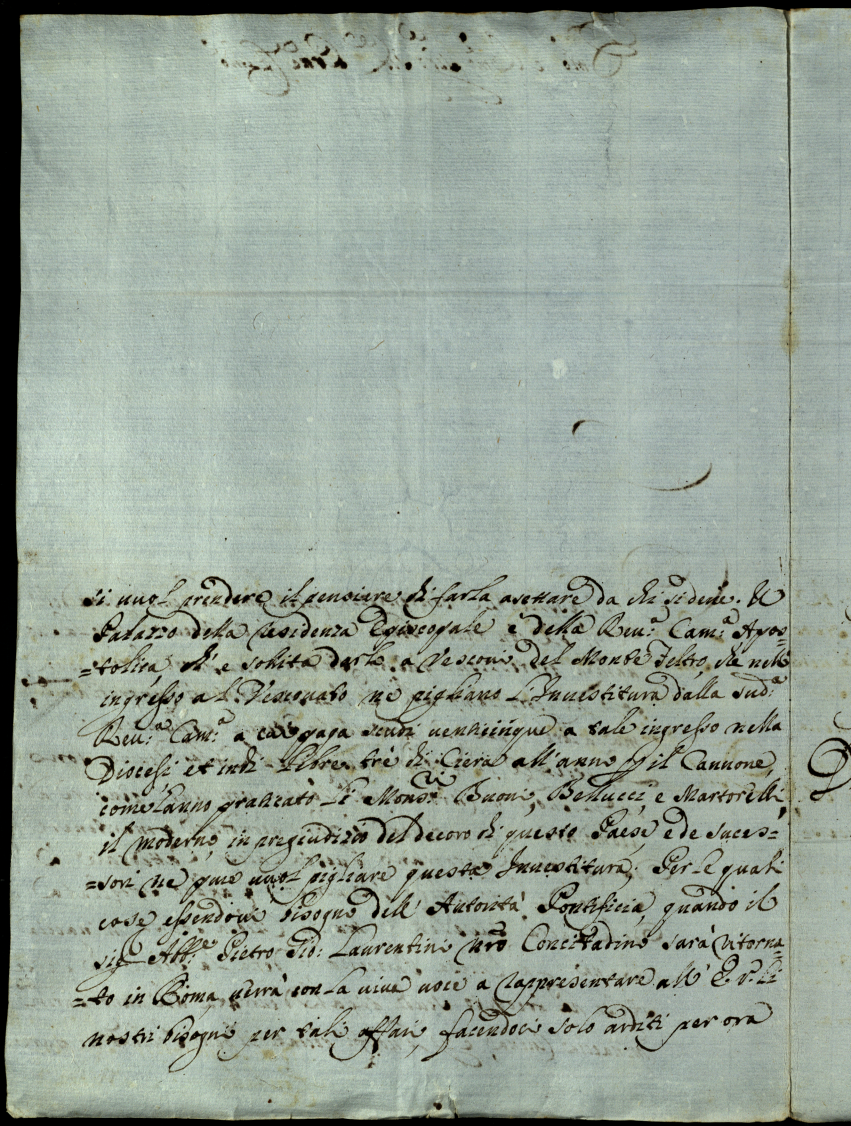 si uuol prendere il pensiere di farla asettare da chi si deue. Il
Palazzo della residenza Episcopale è della Reu.a Cam.a Apos=
=tolica ch'è solita darlo a Vescoui del Monte Feltro, che nell'
ingresso al Vescouato ne pigliano l'Inuestitura dalla sud.a
Reu.a Cam.a a cui paga scudi uenticinque a tale ingresso nella
Diocesi, et indi Libre trè di Ciera all'anno p il Cannone,
come lanno praticato li Mons.ri Buoni, Bellucci, e Martorelli,
il moderno in pregiudizio del decoro di questo Paese e de suces=
=sori ne pure uuol pigliare questa Inuestitura; Per le quali
cose essendoui bisogno dell'Autorità Pontificia, quando il
sig. Abb.e Pietro Sid: Laurentini nro Concittadino sarà ritorna=
=to in Roma uerrà con la uiua uoce a rappresentare all' E. V. li
nostri bisogni per tali affari, facendoci solo arditi per ora